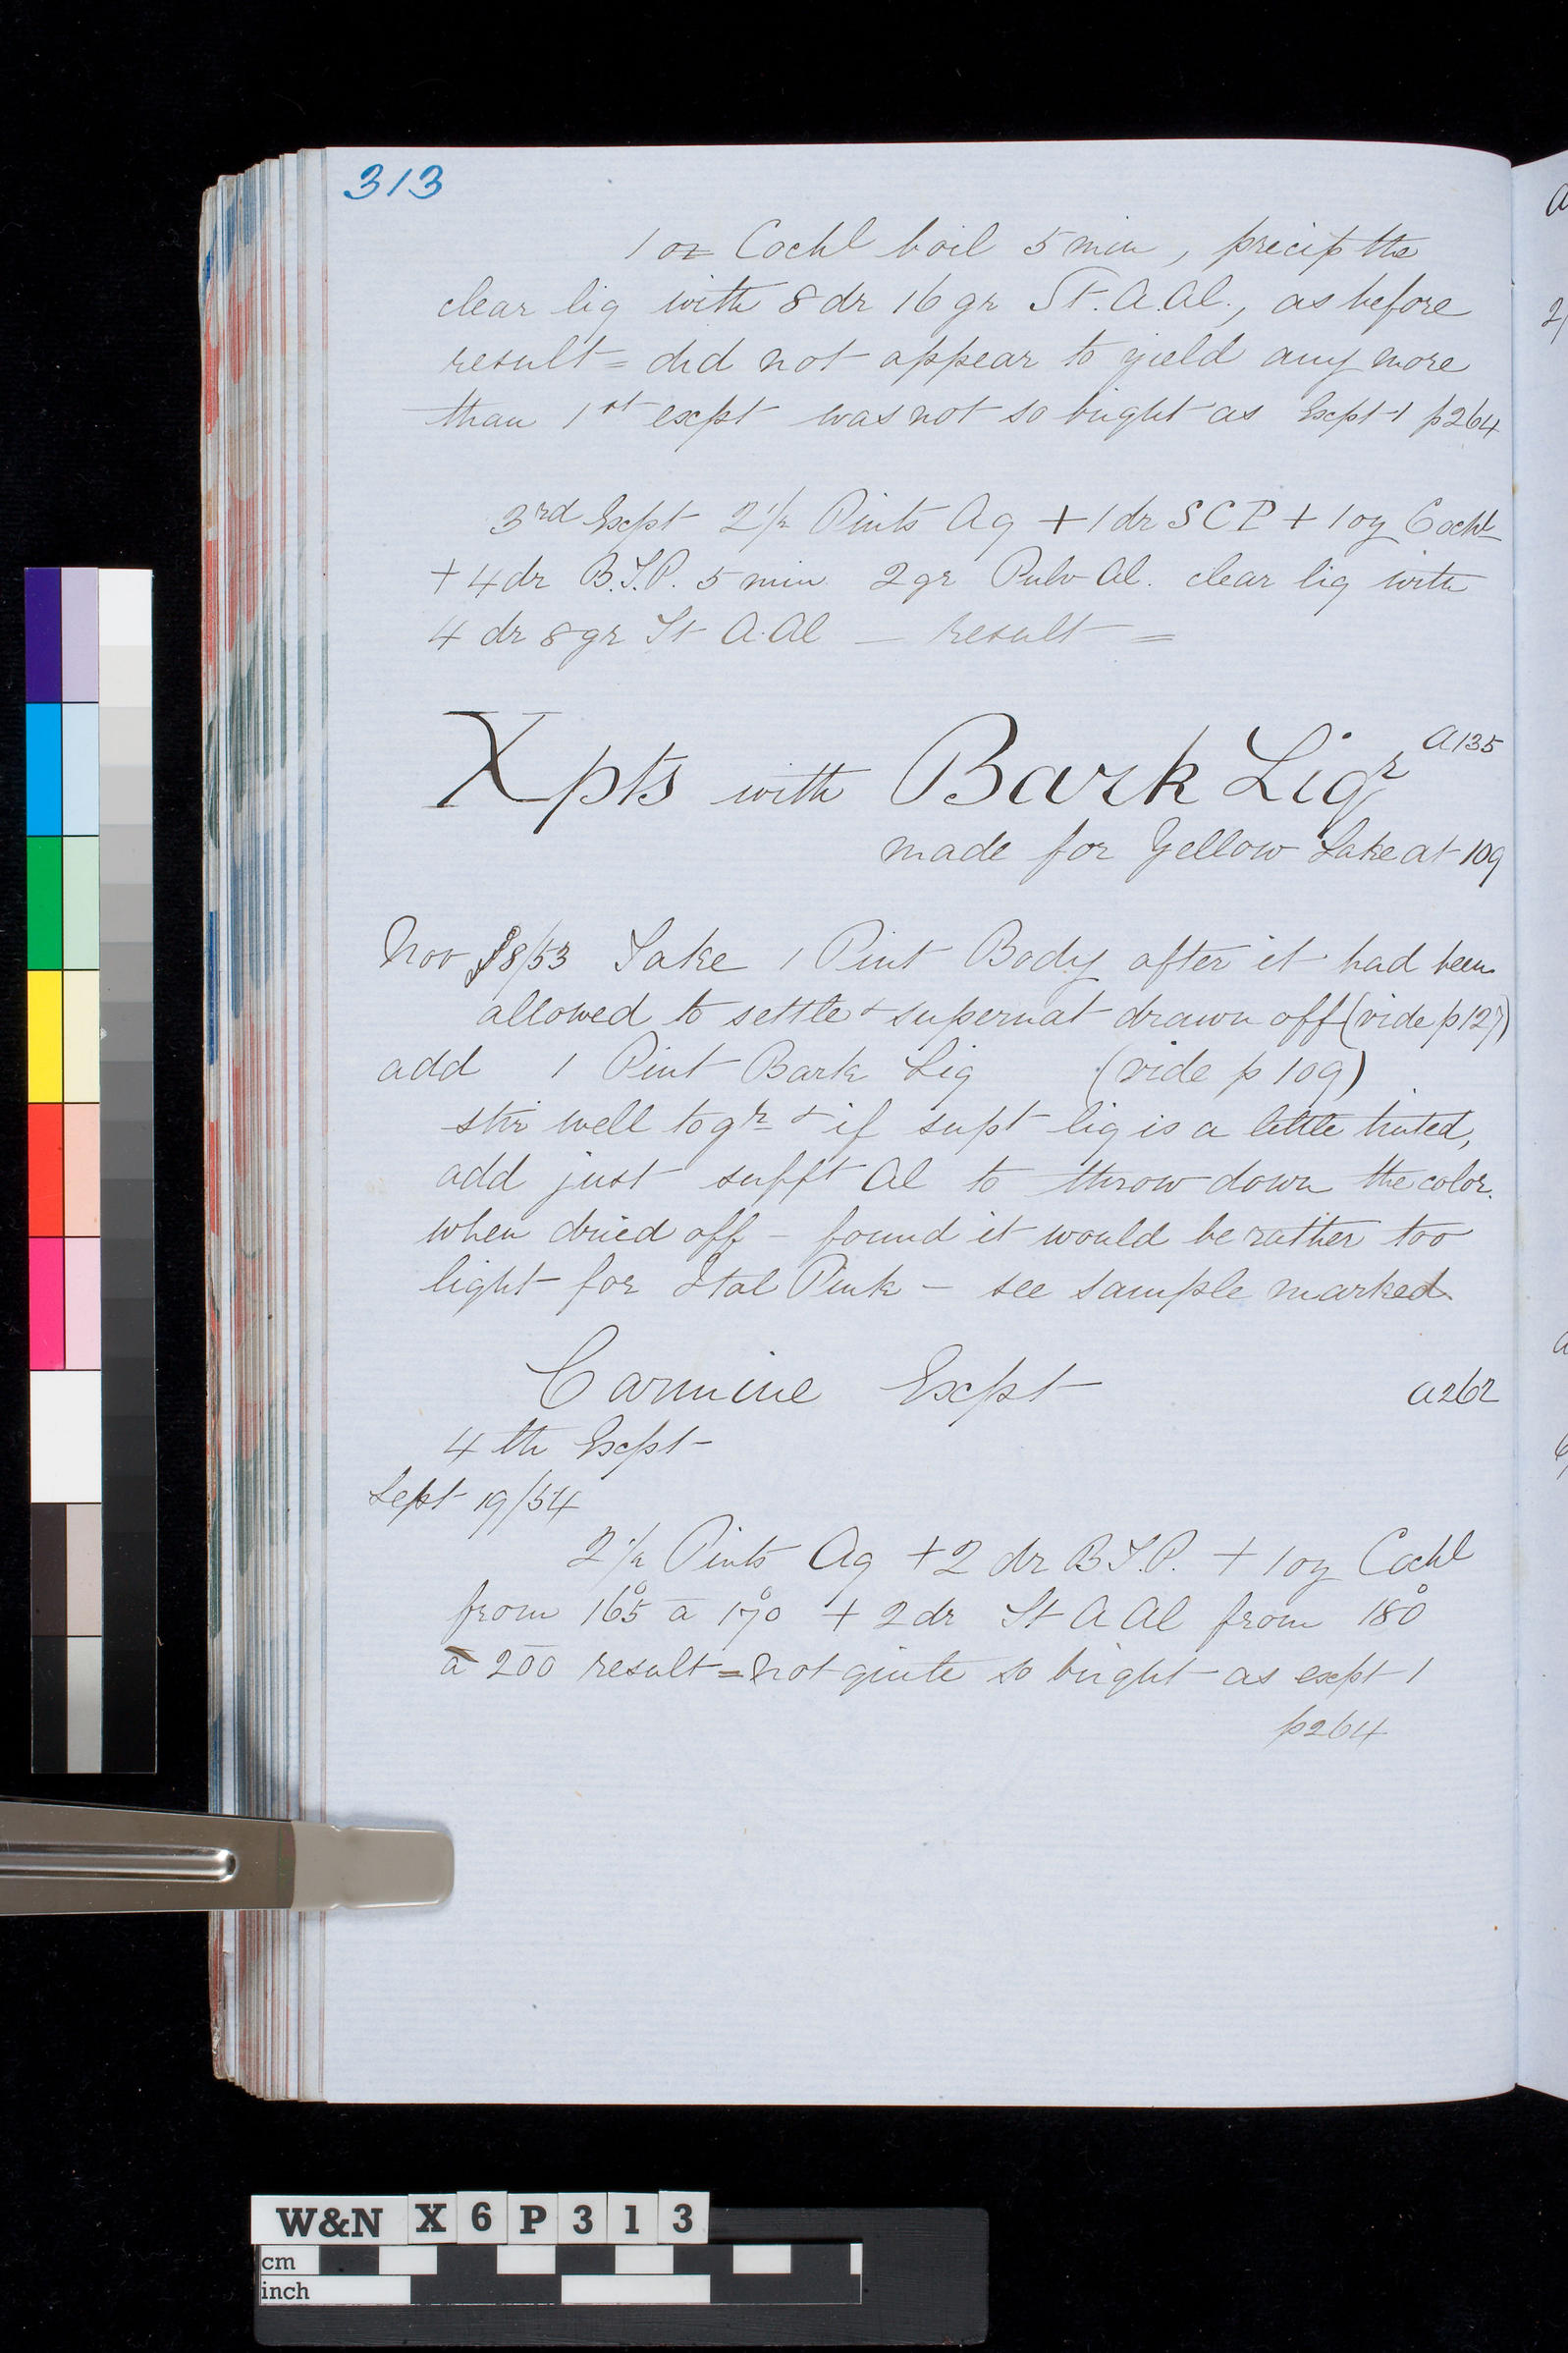 313
1 oz Cochl boil 5 min, precip the
clear liq with 8 dr 16 gr St. A. Al., as before
result = did not appear to yield any more
than 1st expt was not so bright as Expt 1 p264
3rd Expt 2 1/2 Pints Aq + 1 dr SCP + 1 oz Cochl
+ 4 dr B.T.P. 5 min 2 gr Pulv Al. clear liq with
4 dr 8 gr St A. Al — result =
Xpts with Bark Liqr A135
made for Yellow Lake at 109
Nov 18/53 Take 1 Pint Body after it had been
allowed to settle & supernat drawn off (vide p 127)
add 1 Pint Bark Liq (vide p 109)
stir well togr & if supt liq is a little tinted,
add just sufft Al to throw down the color.
when dried off – found it would be rather too
light for Ital Pink – see sample marked
Carmine Expt A262
4th Expt
Sept 19/54
2 1/2 Pints Aq + 2 dr B T.P. + 1 oz Cochl
from 165° a 170° + 2 dr St A Al from 180°
a 200 result = Not quite so bright as expt 1
p264
W&N X 6 P 3 1 3
cm
inch